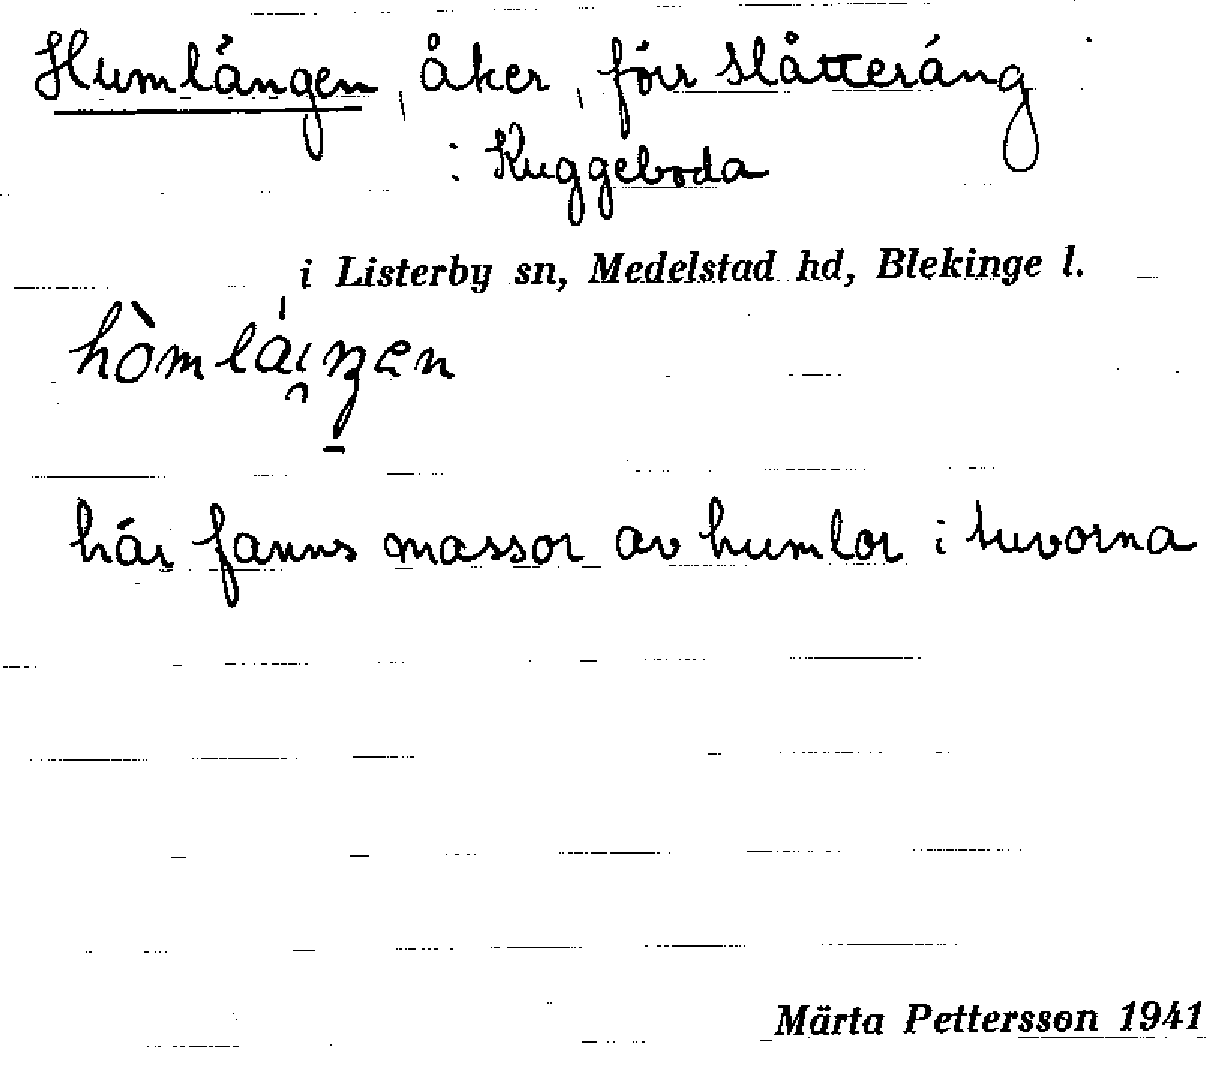 Humlängen, åker, förr slåtteräng
i Kuggeboda
i Listerby sn, Medelstad hd, Blekinge l.
här fanns massor av humlor i tuvorna
Märta Pettersson 1941